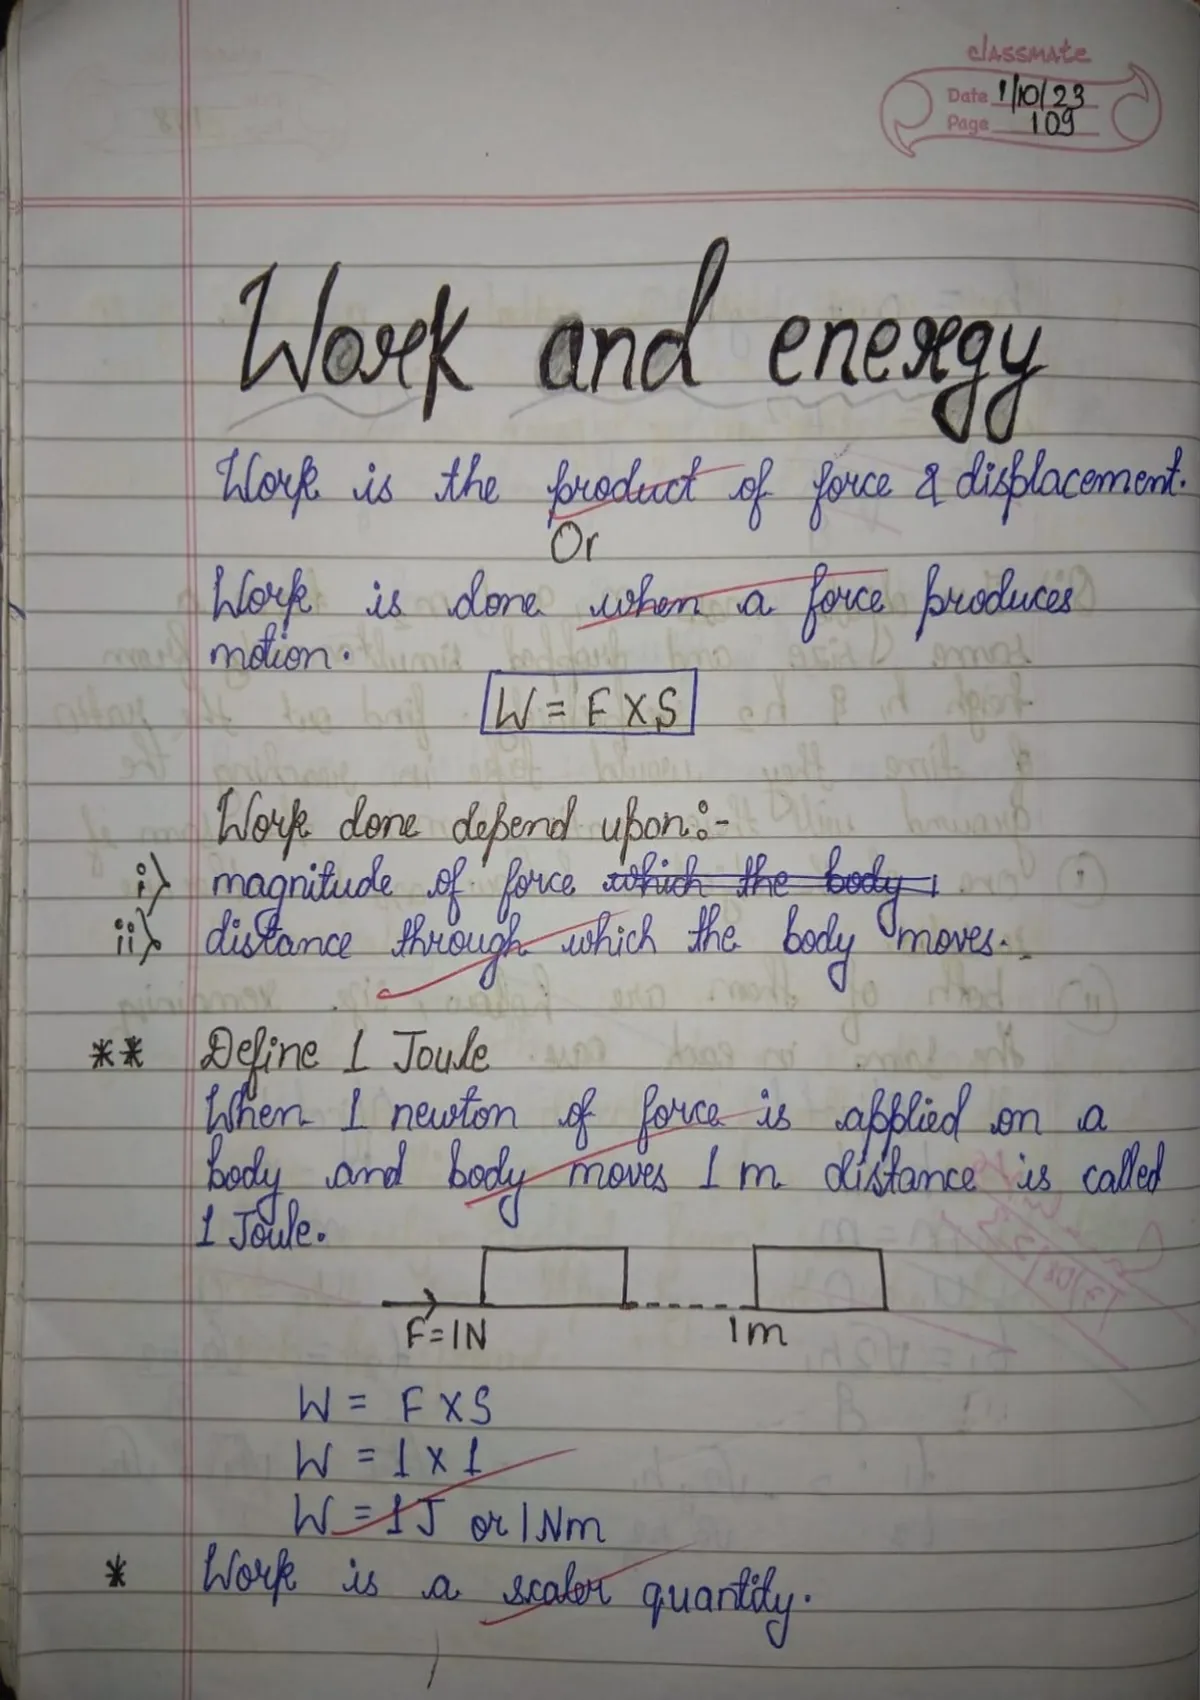 classmate
Date 1/10/23
Page 109
Work and energy
Work is the product of force & displacement.
Or
Work is done when a force produces
motion.
W = F X S
Work done depend upon:-
i) magnitude of force which the body
ii) distance through which the body moves.
** Define 1 Joule
When 1 newton of force is applied on a
body and body moves 1 m distance is called
1 Joule.
F=1N 1m
W = F X S
W = 1 x 1
W = 1J or 1Nm
* Work is a scaler quantity.